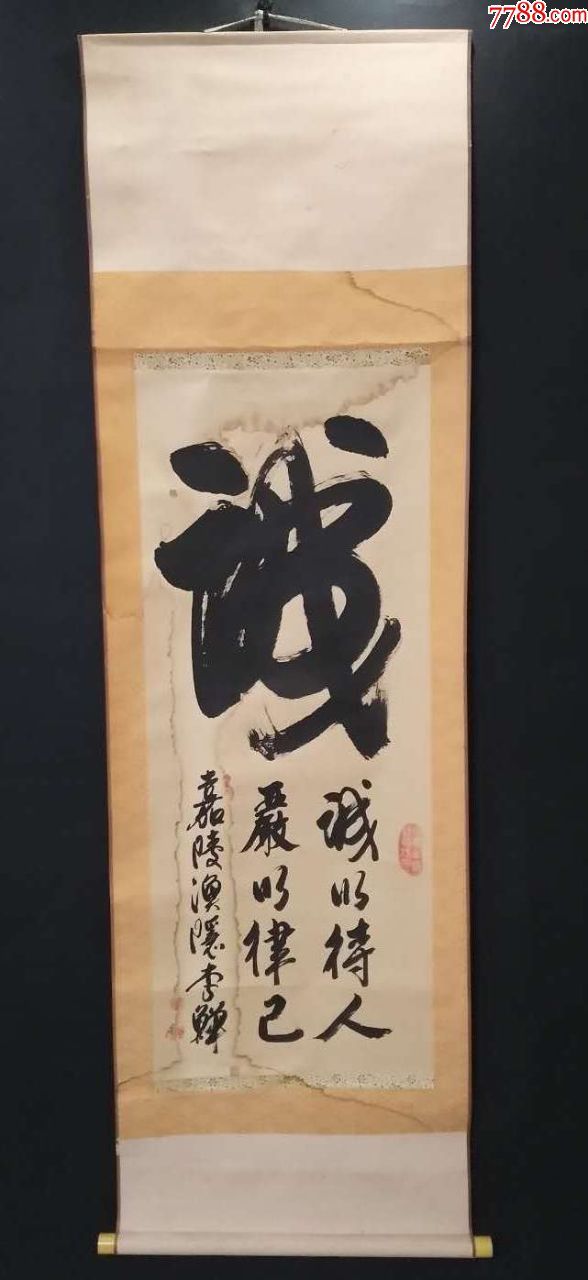 7788.com
誠
誠以待人
嚴以律己
嘉陵漁隱李